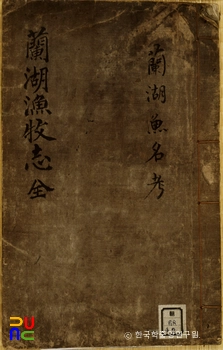 蘭湖漁牧志 全
蘭湖魚名考
© 한국학중앙연구원